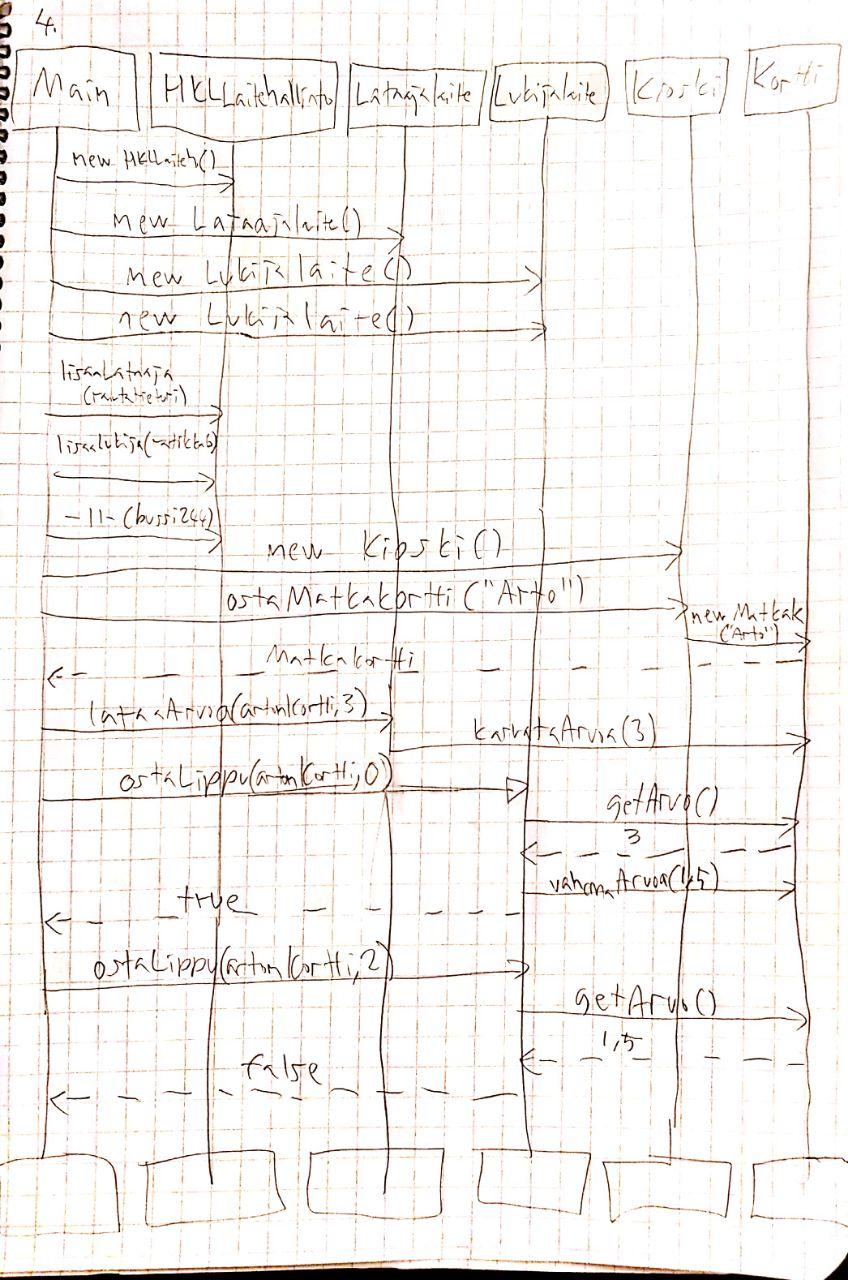 4.
Main
HKLLaitehallinto
Lataajalaite
Lukijalaite
Kioski
Kortti
new HKLLaiteh()
new Lataajalaite()
new Lukijalaite()
new Lukijalaite()
lisaaLataaja
(rautatietori)
lisaaLukija(ratikka6)
-11-(bussi244)
new Kioski()
ostaMatkakortti("Arto")
new Matkak
("Arto")
Matkakortti
lataaArvoa(artonKortti,3)
kasvataArvoa(3)
ostaLippu(artonKortti,0)
getArvo()
3
vahennaArvoa(1,5)
true
ostaLippu(artonKortti,2)
getArvo()
1,5
false